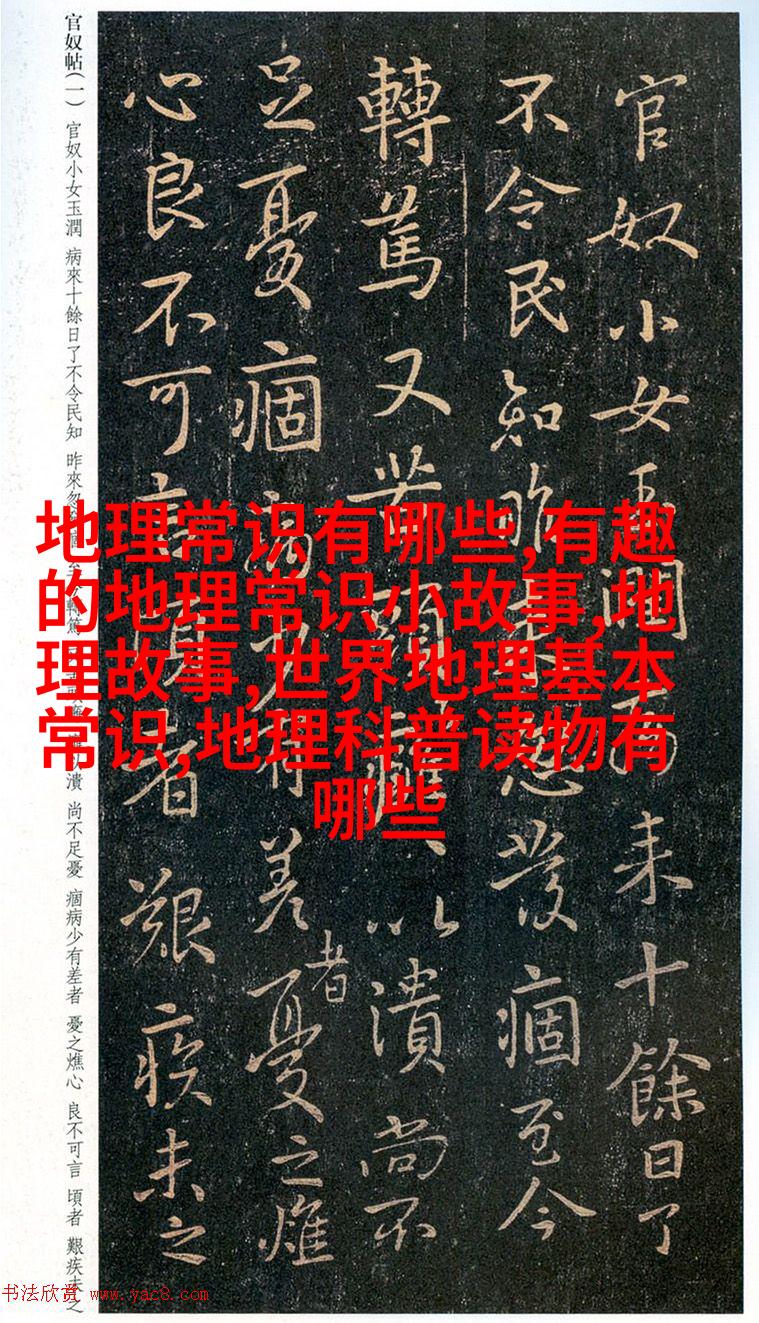 官奴小女玉潤病来十餘日了
不令民知昨来忽發痼至今
轉篤又苦頭癰、以潰尚不
足憂痼病少有差者憂之燋
心良不可言頃者艱疾未之
官奴帖(一) 官奴小女玉潤 病來十餘日了不令民知 昨來忽 轉篤 潰 尚不足憂 痼病少有差者 憂之燋心 良不可言 頃者 艱疾未之
地理常识有哪些,有趣
的地理常识小故事,地
理故事,世界地理基本
常识,地理科普读物有
哪些
书法欣赏 www.yac8.com